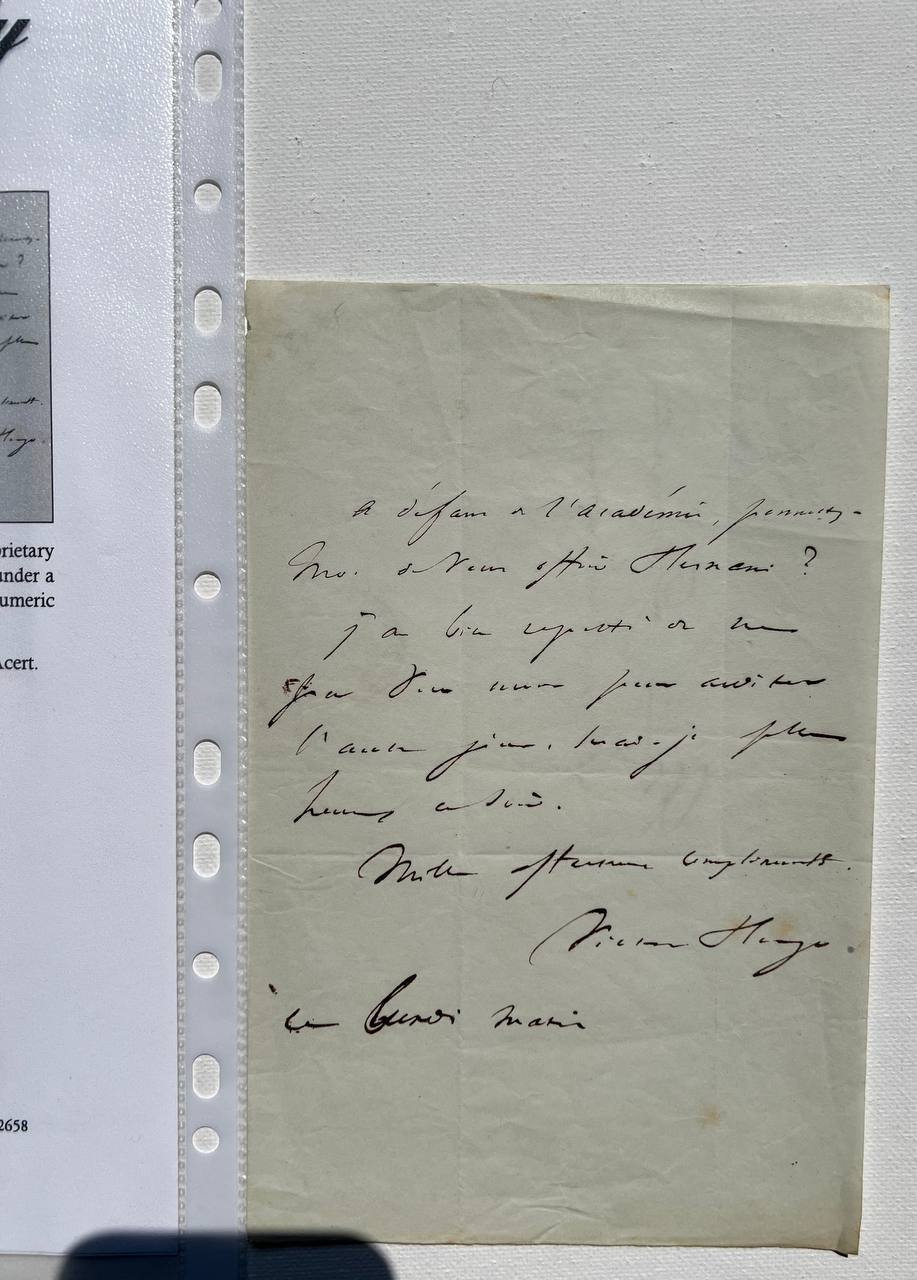 y
rietary
under a
umeric
Acert.
2658
?
Hugo.
à défaut de l'académie, permettez-
moi de vous offrir Hernani ?
j'ai bien regretté de ne
pas vous avoir pour auditeur
l'autre jour. Serai-je plus
heureux ce soir.
Mille affectueux compliments.
Victor Hugo
ce lundi matin